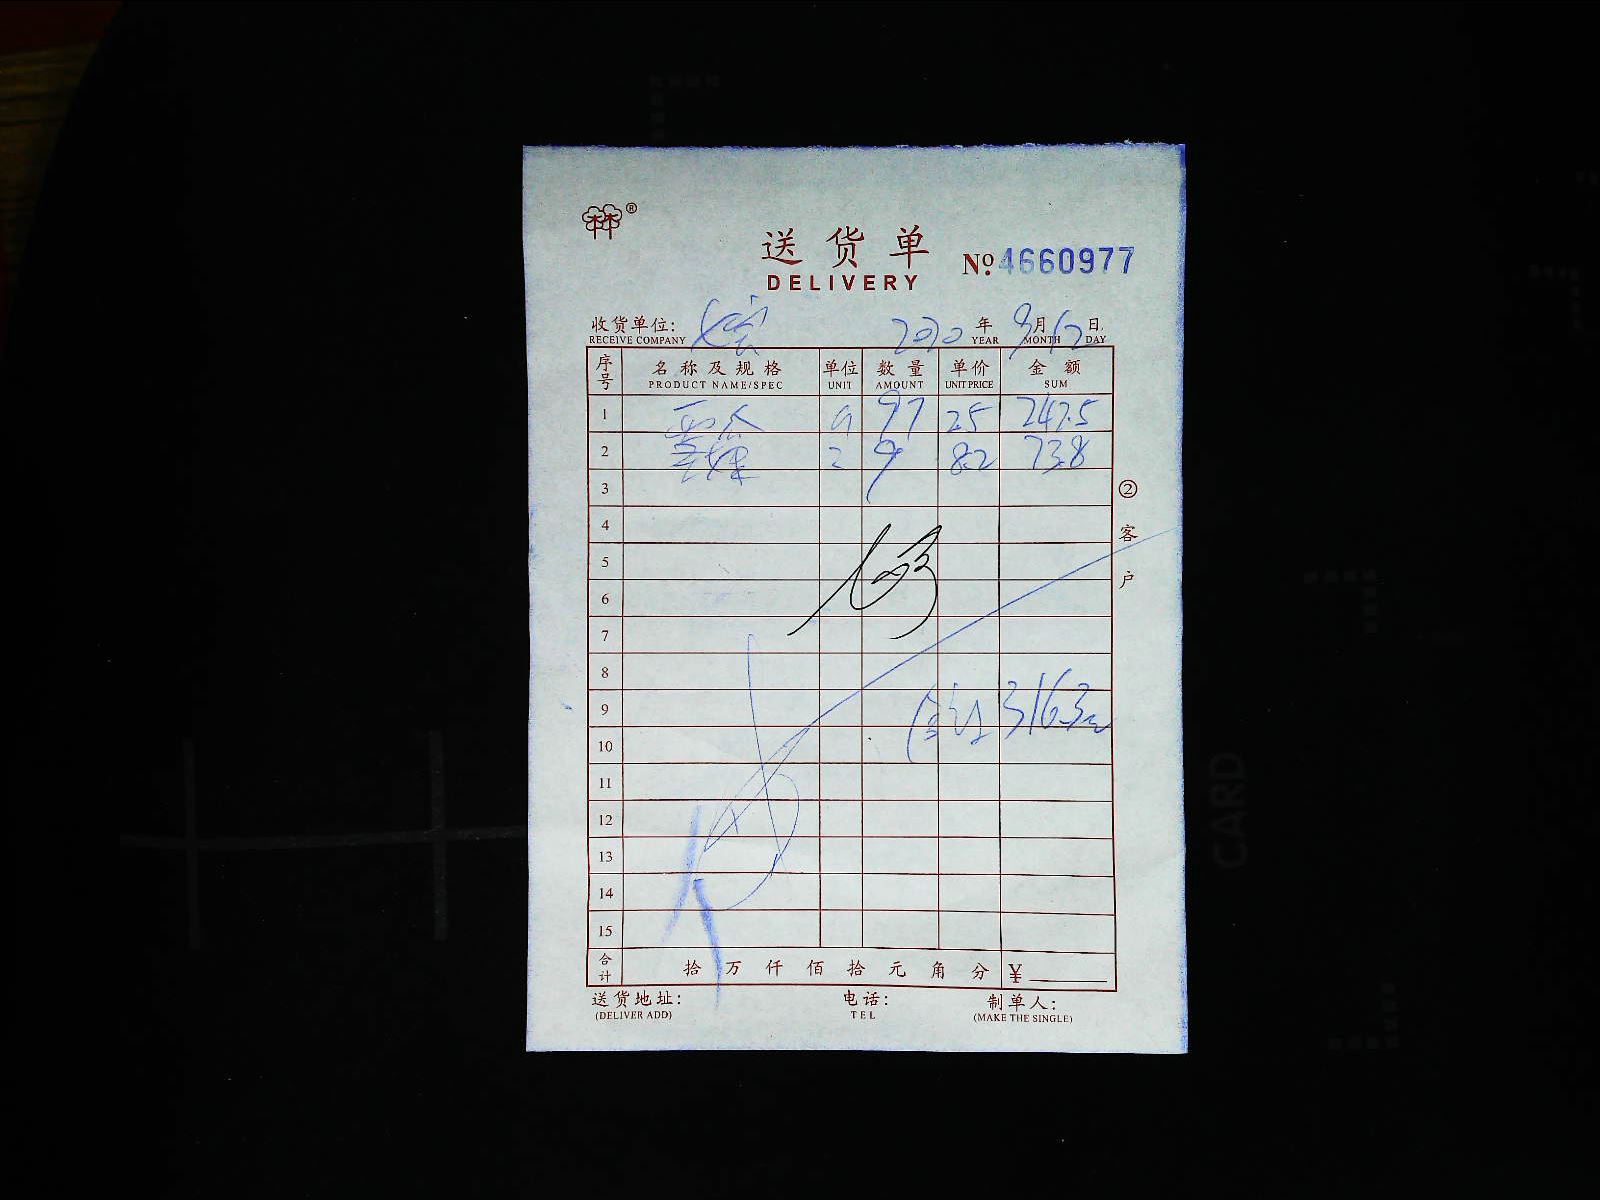 ®
送货单
DELIVERY
№ 4660977
收货单位: 2020 年 9 月 12 日
RECEIVE COMPANY YEAR MONTH DAY
序号 名称及规格 单位 数量 单价 金额
PRODUCT NAME/SPEC UNIT AMOUNT UNIT PRICE SUM
1 25 242.5
2 9 8.2 73.8
3
4
5
6
7
8
9 316.3元
10
11
12
13
14
15
合计 拾 万 仟 佰 拾 元 角 分 ¥
② 客户
送货地址: 电话: 制单人:
(DELIVER ADD) TEL (MAKE THE SINGLE)
CARD